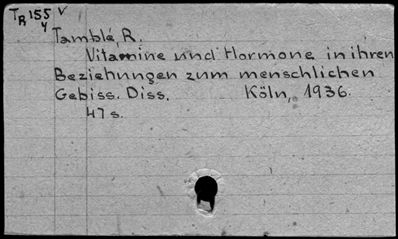 TR 155 V
y
Tamblé, R.
Vitamine und Hormone in ihren
Beziehungen zum menschlichen
Gebiss. Diss. Köln, 1936.
47 s.